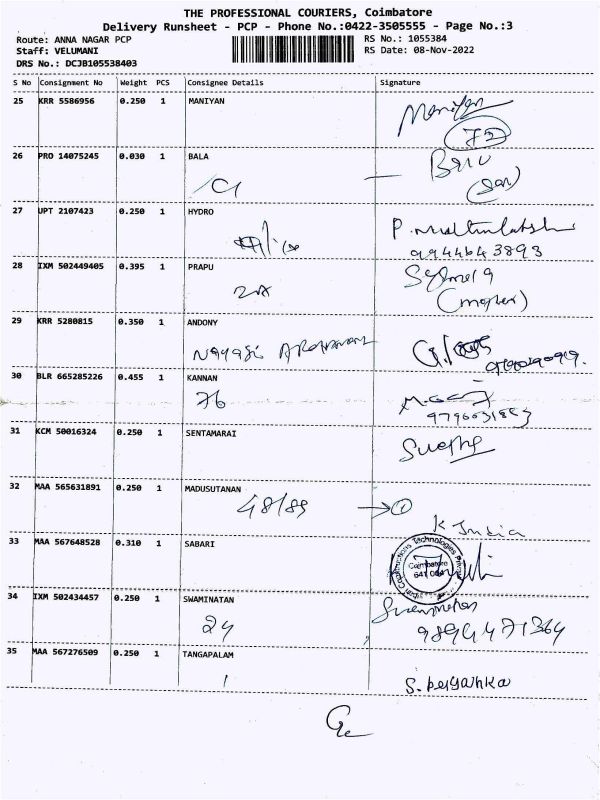 THE PROFESSIONAL COURIERS, Coimbatore
Delivery Runsheet - PCP - Phone No.:0422-3505555 - Page No.:3
Route: ANNA NAGAR PCP
RS No.: 1055384
Staff: VELUMANI
RS Date: 08-Nov-2022
DRS No.: DCJB105538403
S No Consignment No Weight PCS Consignee Details Signature
25 KRR 5586956 0.250 1 MANIYAN
Maniyan
72
26 PRO 14075245 0.030 1 BALA
27 UPT 2107423 0.250 1 HYDRO
9944643893
28 IXM 502449405 0.395 1 PRAPU
(mother)
29 KRR 5280815 0.350 1 ANDONY
30 BLR 665285226 0.455 1 KANNAN
76
31 KCM 50016324 0.250 1 SENTAMARAI
32 MAA 565631891 0.250 1 MADUSUTANAN
48/89 → 1
K India
33 MAA 567648528 0.310 1 SABARI
Technologies
Coimbatore
641 004
34 IXM 502434457 0.250 1 SWAMINATAN
24
9894471364
35 MAA 567276509 0.250 1 TANGAPALAM
1
S. Priyanka